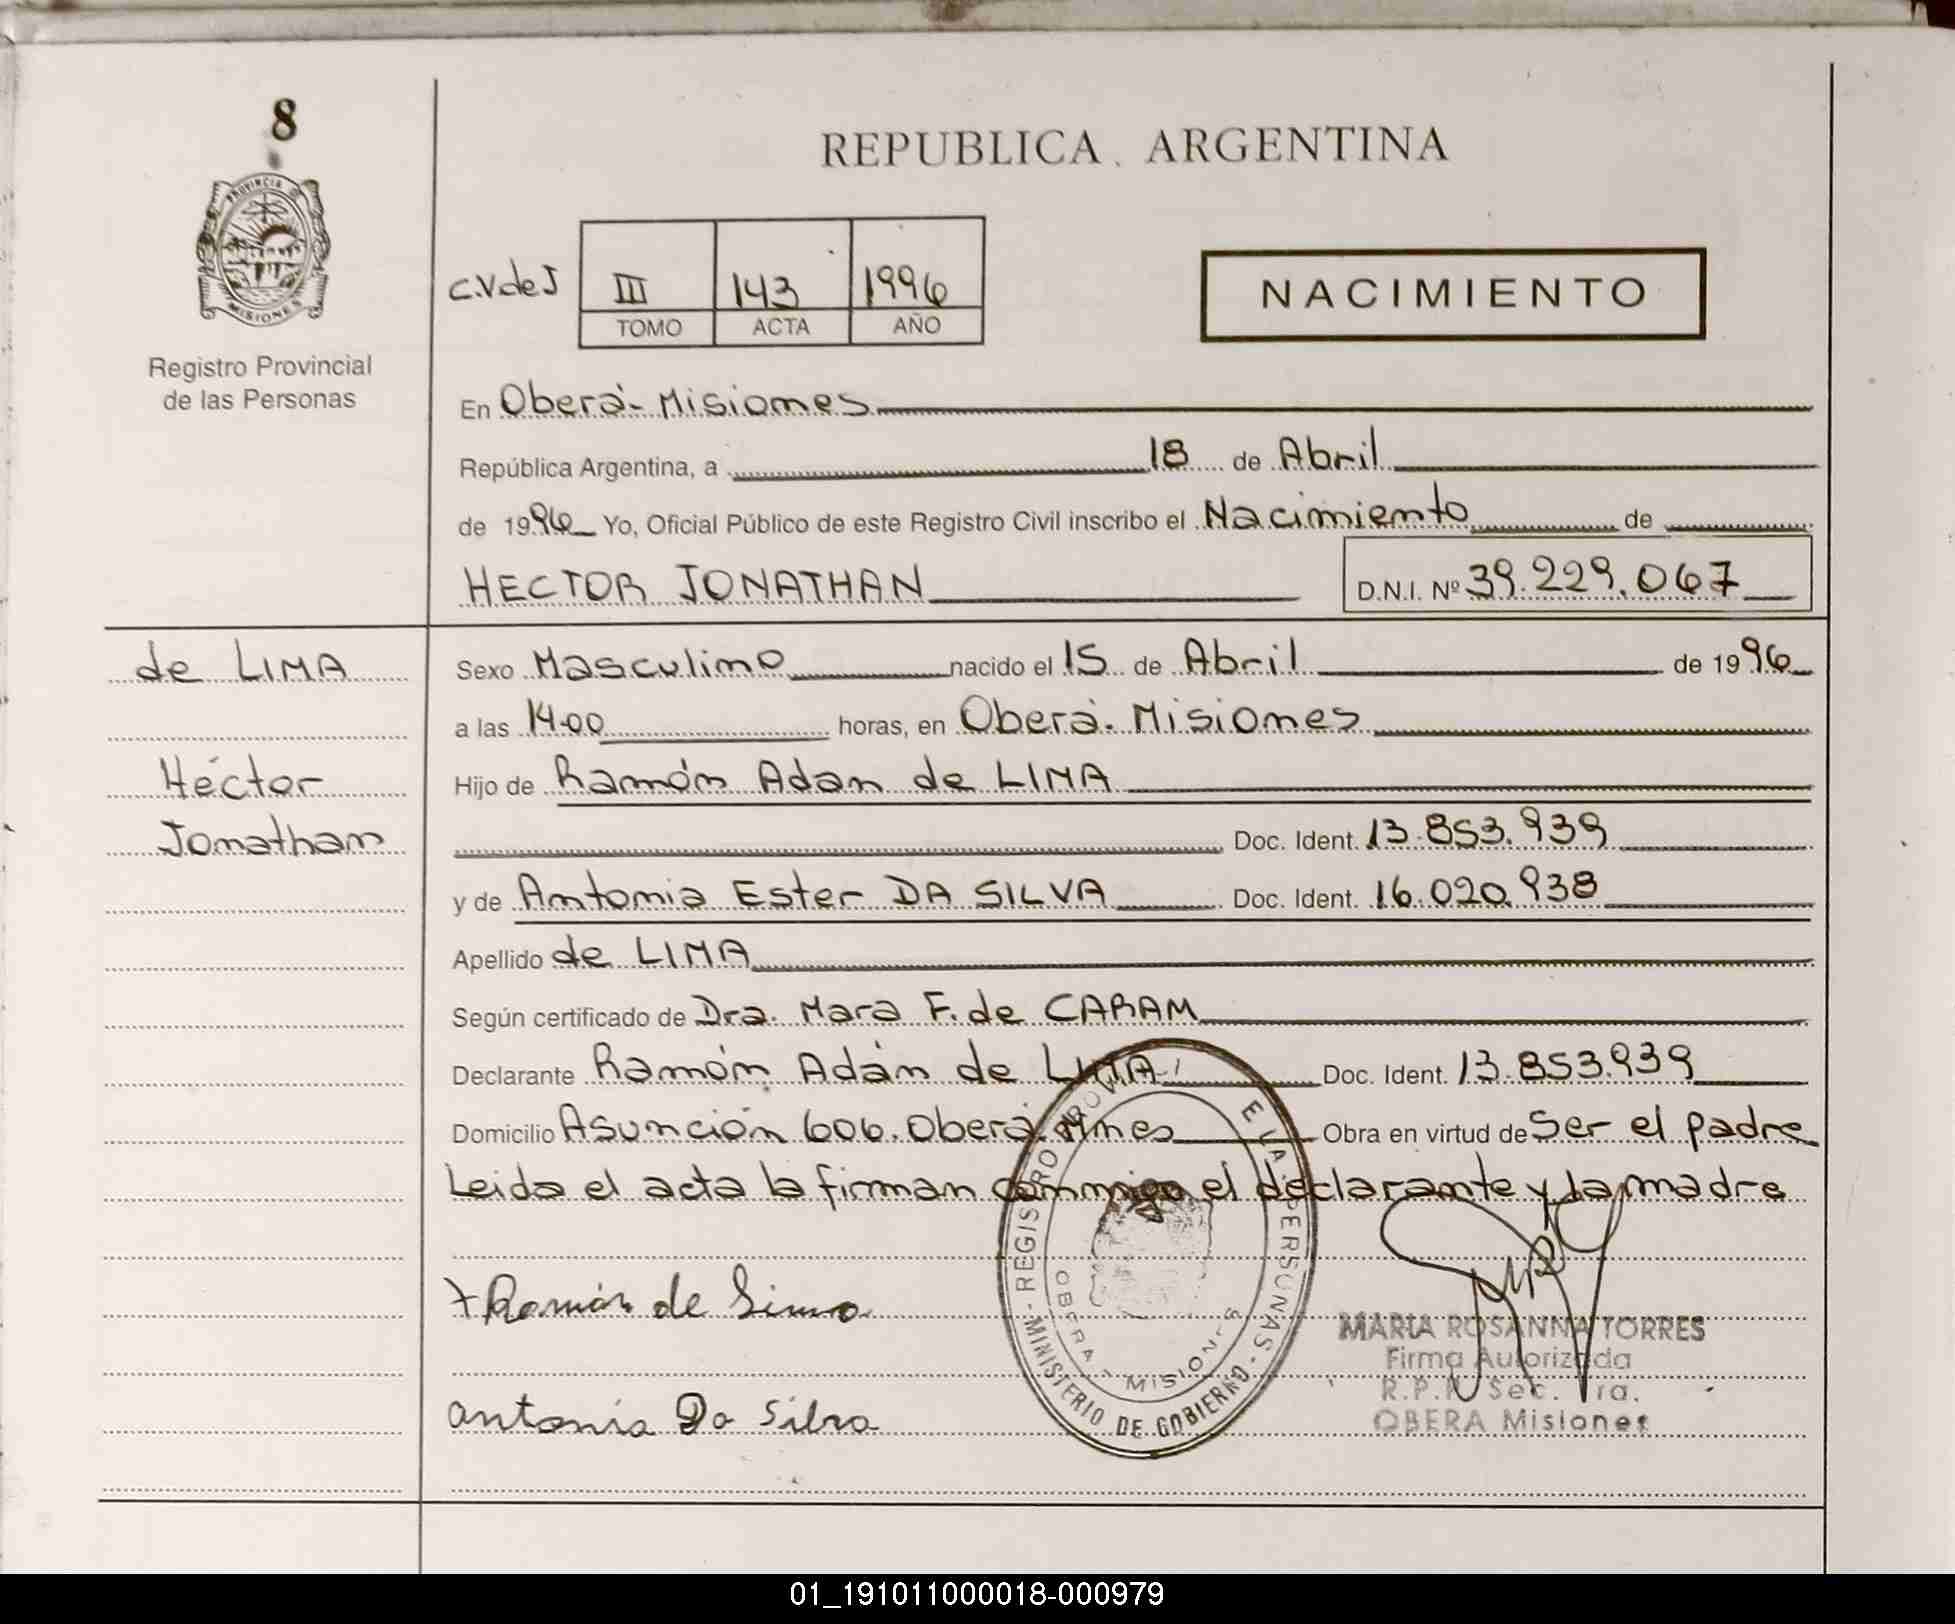 8
PROVINCIA DE
MISIONES
Registro Provincial
de las Personas
REPUBLICA ARGENTINA
C.V de J
III 143 1996
TOMO ACTA AÑO
NACIMIENTO
En Oberá - Misiones
República Argentina, a 18 de Abril
de 1996 Yo, Oficial Público de este Registro Civil inscribo el Nacimiento de
HECTOR JONATHAN D.N.I. Nº 39.229.067
de LIMA
Héctor
Jonathan
Sexo Masculino nacido el 15 de Abril de 1996
a las 14.00 horas, en Oberá - Misiones
Hijo de Ramón Adan de LIMA
Doc. Ident. 13.853.939
y de Antonia Ester DA SILVA Doc. Ident. 16.020.938
Apellido de LIMA
Según certificado de Dra. Mara F. de CARAM
Declarante Ramón Adán de LIMA Doc. Ident. 13.853.939
Domicilio Asunción 606. Oberá. Mnes Obra en virtud de Ser el padre
Leida el acta la firman conmigo el declarante y la madre
Ramón de Lima
Antonia Da Silva
MINISTERIO DE GOBIERNO
OBERA MISIONES
MARIA ROSANNA TORRES
Firma Autorizada
OBERA Misiones
01_191011000018-000979